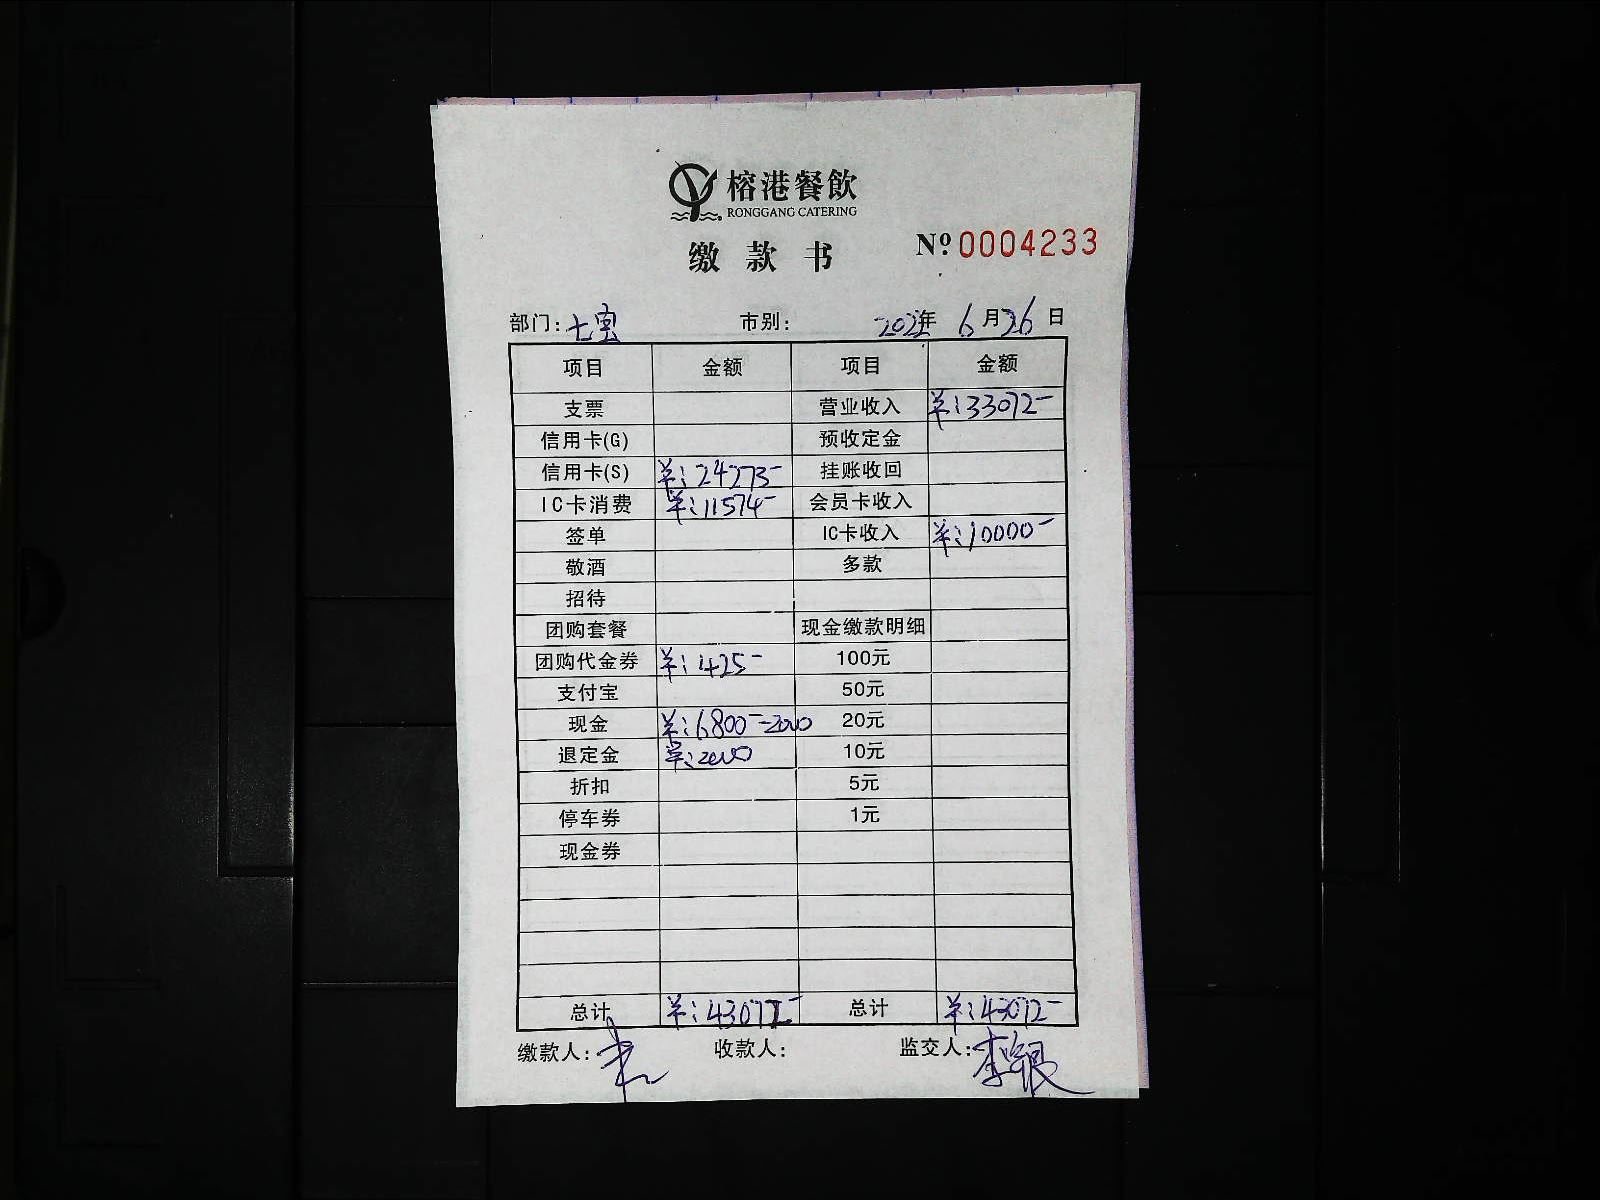 榕港餐飲
RONGGANG CATERING
缴款书 Nº 0004233
部门: 七宝 市别: 2022年 6月26日
项目 金额 项目 金额
支票 营业收入 ¥:33072-
信用卡(G) 预收定金
信用卡(S) ¥:24273- 挂账收回
IC卡消费 ¥:11574- 会员卡收入
签单 IC卡收入 ¥:10000-
敬酒 多款
招待
团购套餐 现金缴款明细
团购代金券 ¥:425- 100元
支付宝 50元
现金 ¥:6800--2000 20元
退定金 ¥:2000 10元
折扣 5元
停车券 1元
现金券
总计 ¥:43072- 总计 ¥:43072-
缴款人: 收款人: 监交人: